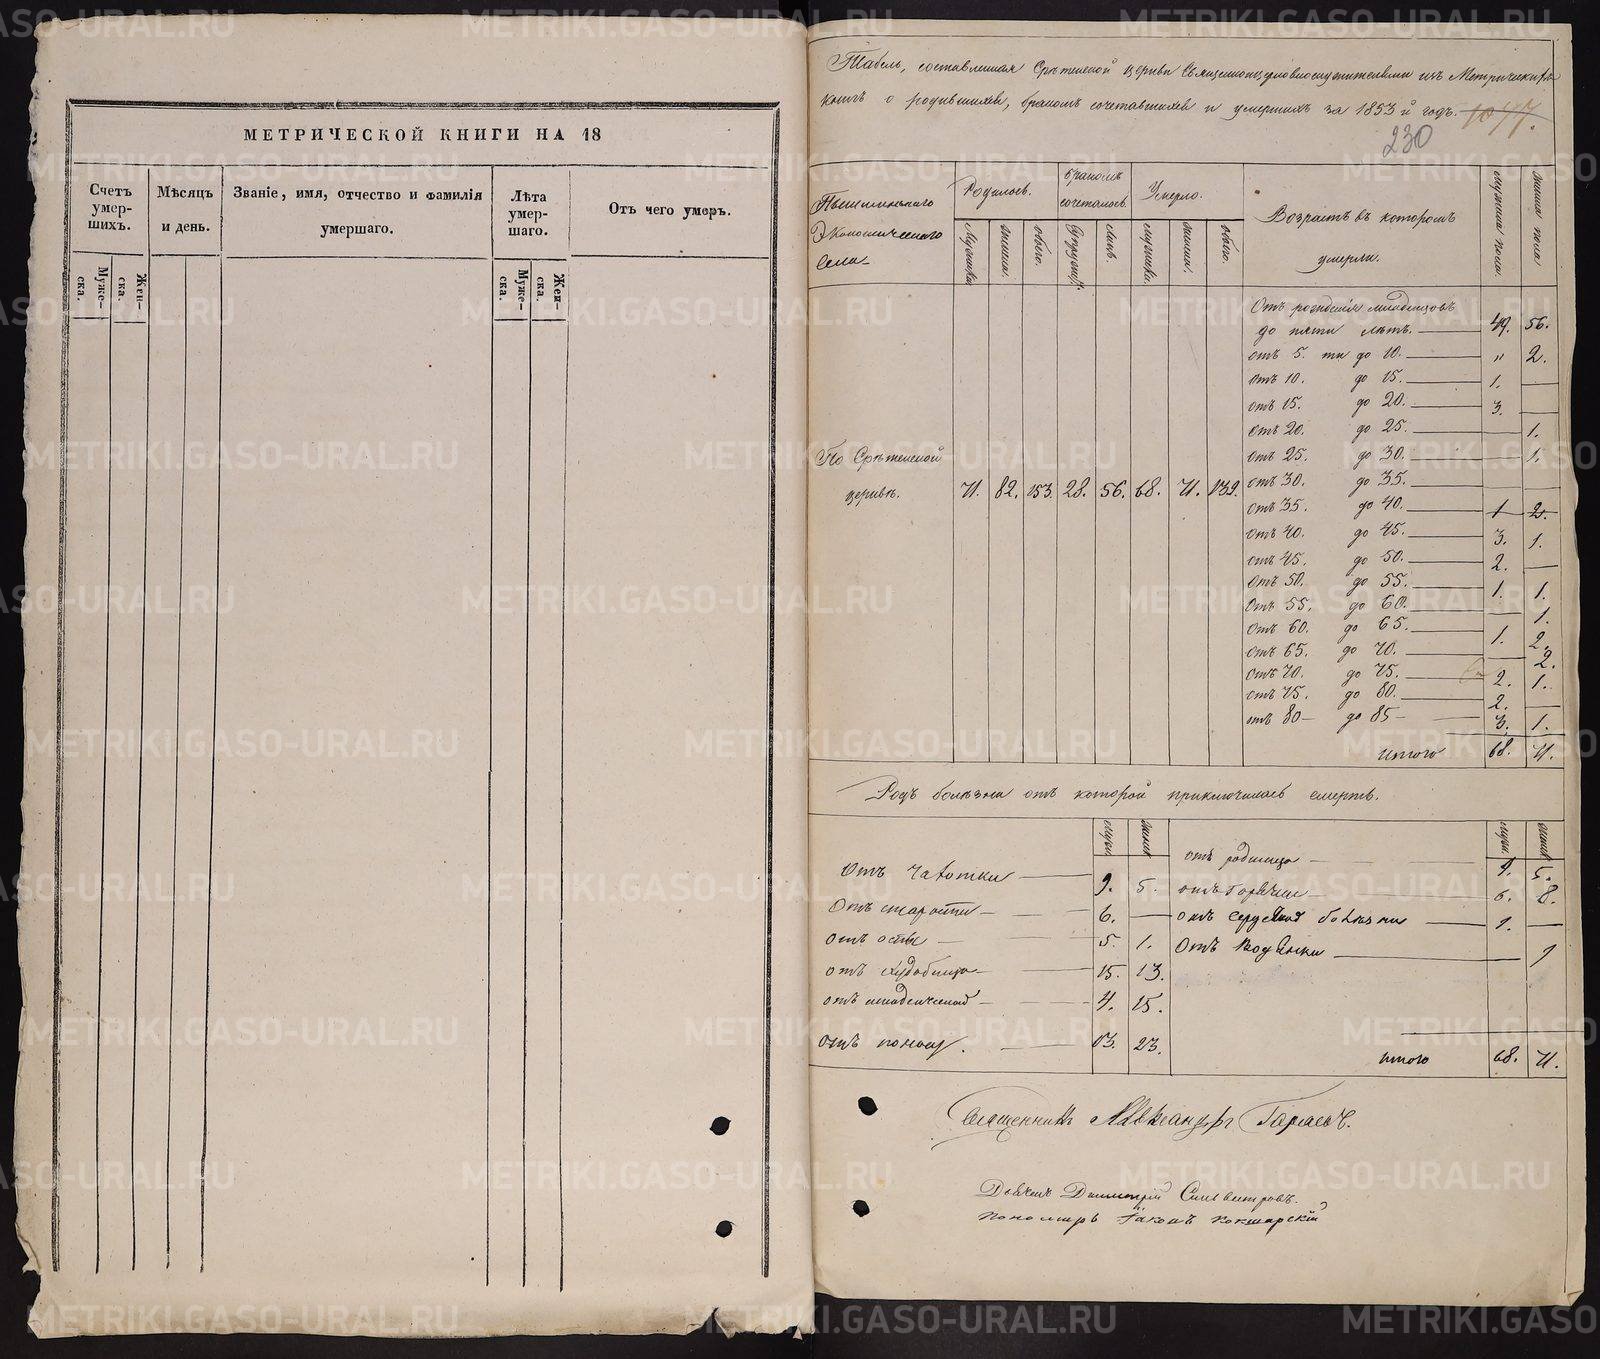 МЕТРИЧЕСКОЙ КНИГИ НА 18
Счетъ умер-шихъ.
Мѣсяцъ и день.
Званіе, имя, отчество и фамилія умершаго.
Лѣта умер-шаго.
Отъ чего умеръ.
Муже-ска.
Жен-ска.
Муже-ска.
Жен-ска.
Табель, составленная Срѣтенской церкви Священноцерковнослужителями изъ Метрическихъ
книгъ о родившихся, бракомъ сочетавшихся и умершихъ за 1853й годъ.
1077.
230
Экономическаго
Села
Родилось.
Бракомъ сочеталось.
Умерло.
Возрастъ въ которомъ умерли.
Мужеска пола.
Женска пола
Мужска.
женска.
обоего.
Супруж.
лицъ.
мужска.
женска.
обоего.
По Срѣтенской
церкви.
71. 82. 153. 28. 56. 68. 71. 139.
Отъ рожденія младенцовъ
до пяти лѣтъ. 49. 56.
отъ 5. ти до 10. " 2.
отъ 10. до 15. 1. —
отъ 15. до 20. 3. —
отъ 20. до 25. — 1.
отъ 25. до 30. — 1.
отъ 30. до 35. — —
отъ 35. до 40. 1 2.
отъ 40. до 45. 3. 1.
отъ 45. до 50. 2. —
отъ 50. до 55. 1. 1.
отъ 55. до 60. — 1.
отъ 60. до 65. 1. 2.
отъ 65. до 70. — 2.
отъ 70. до 75. 2. 1.
отъ 75. до 80. 2. —
отъ 80 – до 85 – 3. 1.
итого 68. 71.
Родъ болѣзни отъ которой приключилась смерть.
муж. женск муж. женск
Отъ чахотки 9. 5.
Отъ старости – 6. —
отъ оспы – 5. 1.
отъ худобища – 15. 13.
отъ младенческой – 4. 15.
отъ поноса. 13. 23.
отъ родимца 9. 5.
отъ горячки 6. 8.
отъ сердечной болѣзни 1. —
Отъ водянки — 1
итого 68. 71.
Священникъ Александръ Тарасовъ.
Дьячекъ Димитрій Сильвестровъ.
Пономарь Іаковъ Кокшарскій
METRIKI.GASO-URAL.RU